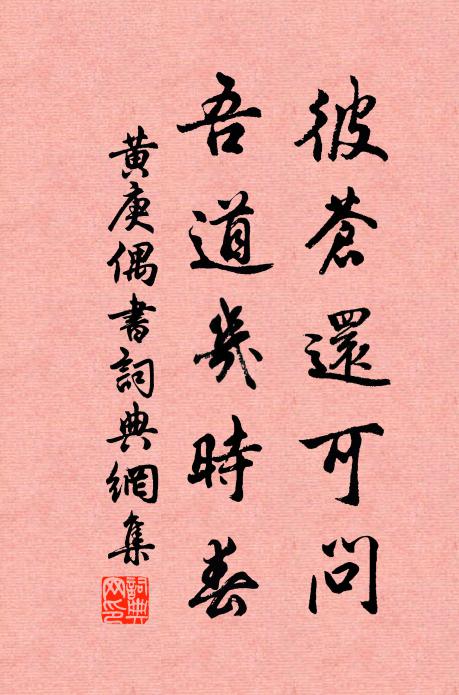 彼蒼還可問
吾道幾時春
黃庚偶書詞典網集
詞典網印